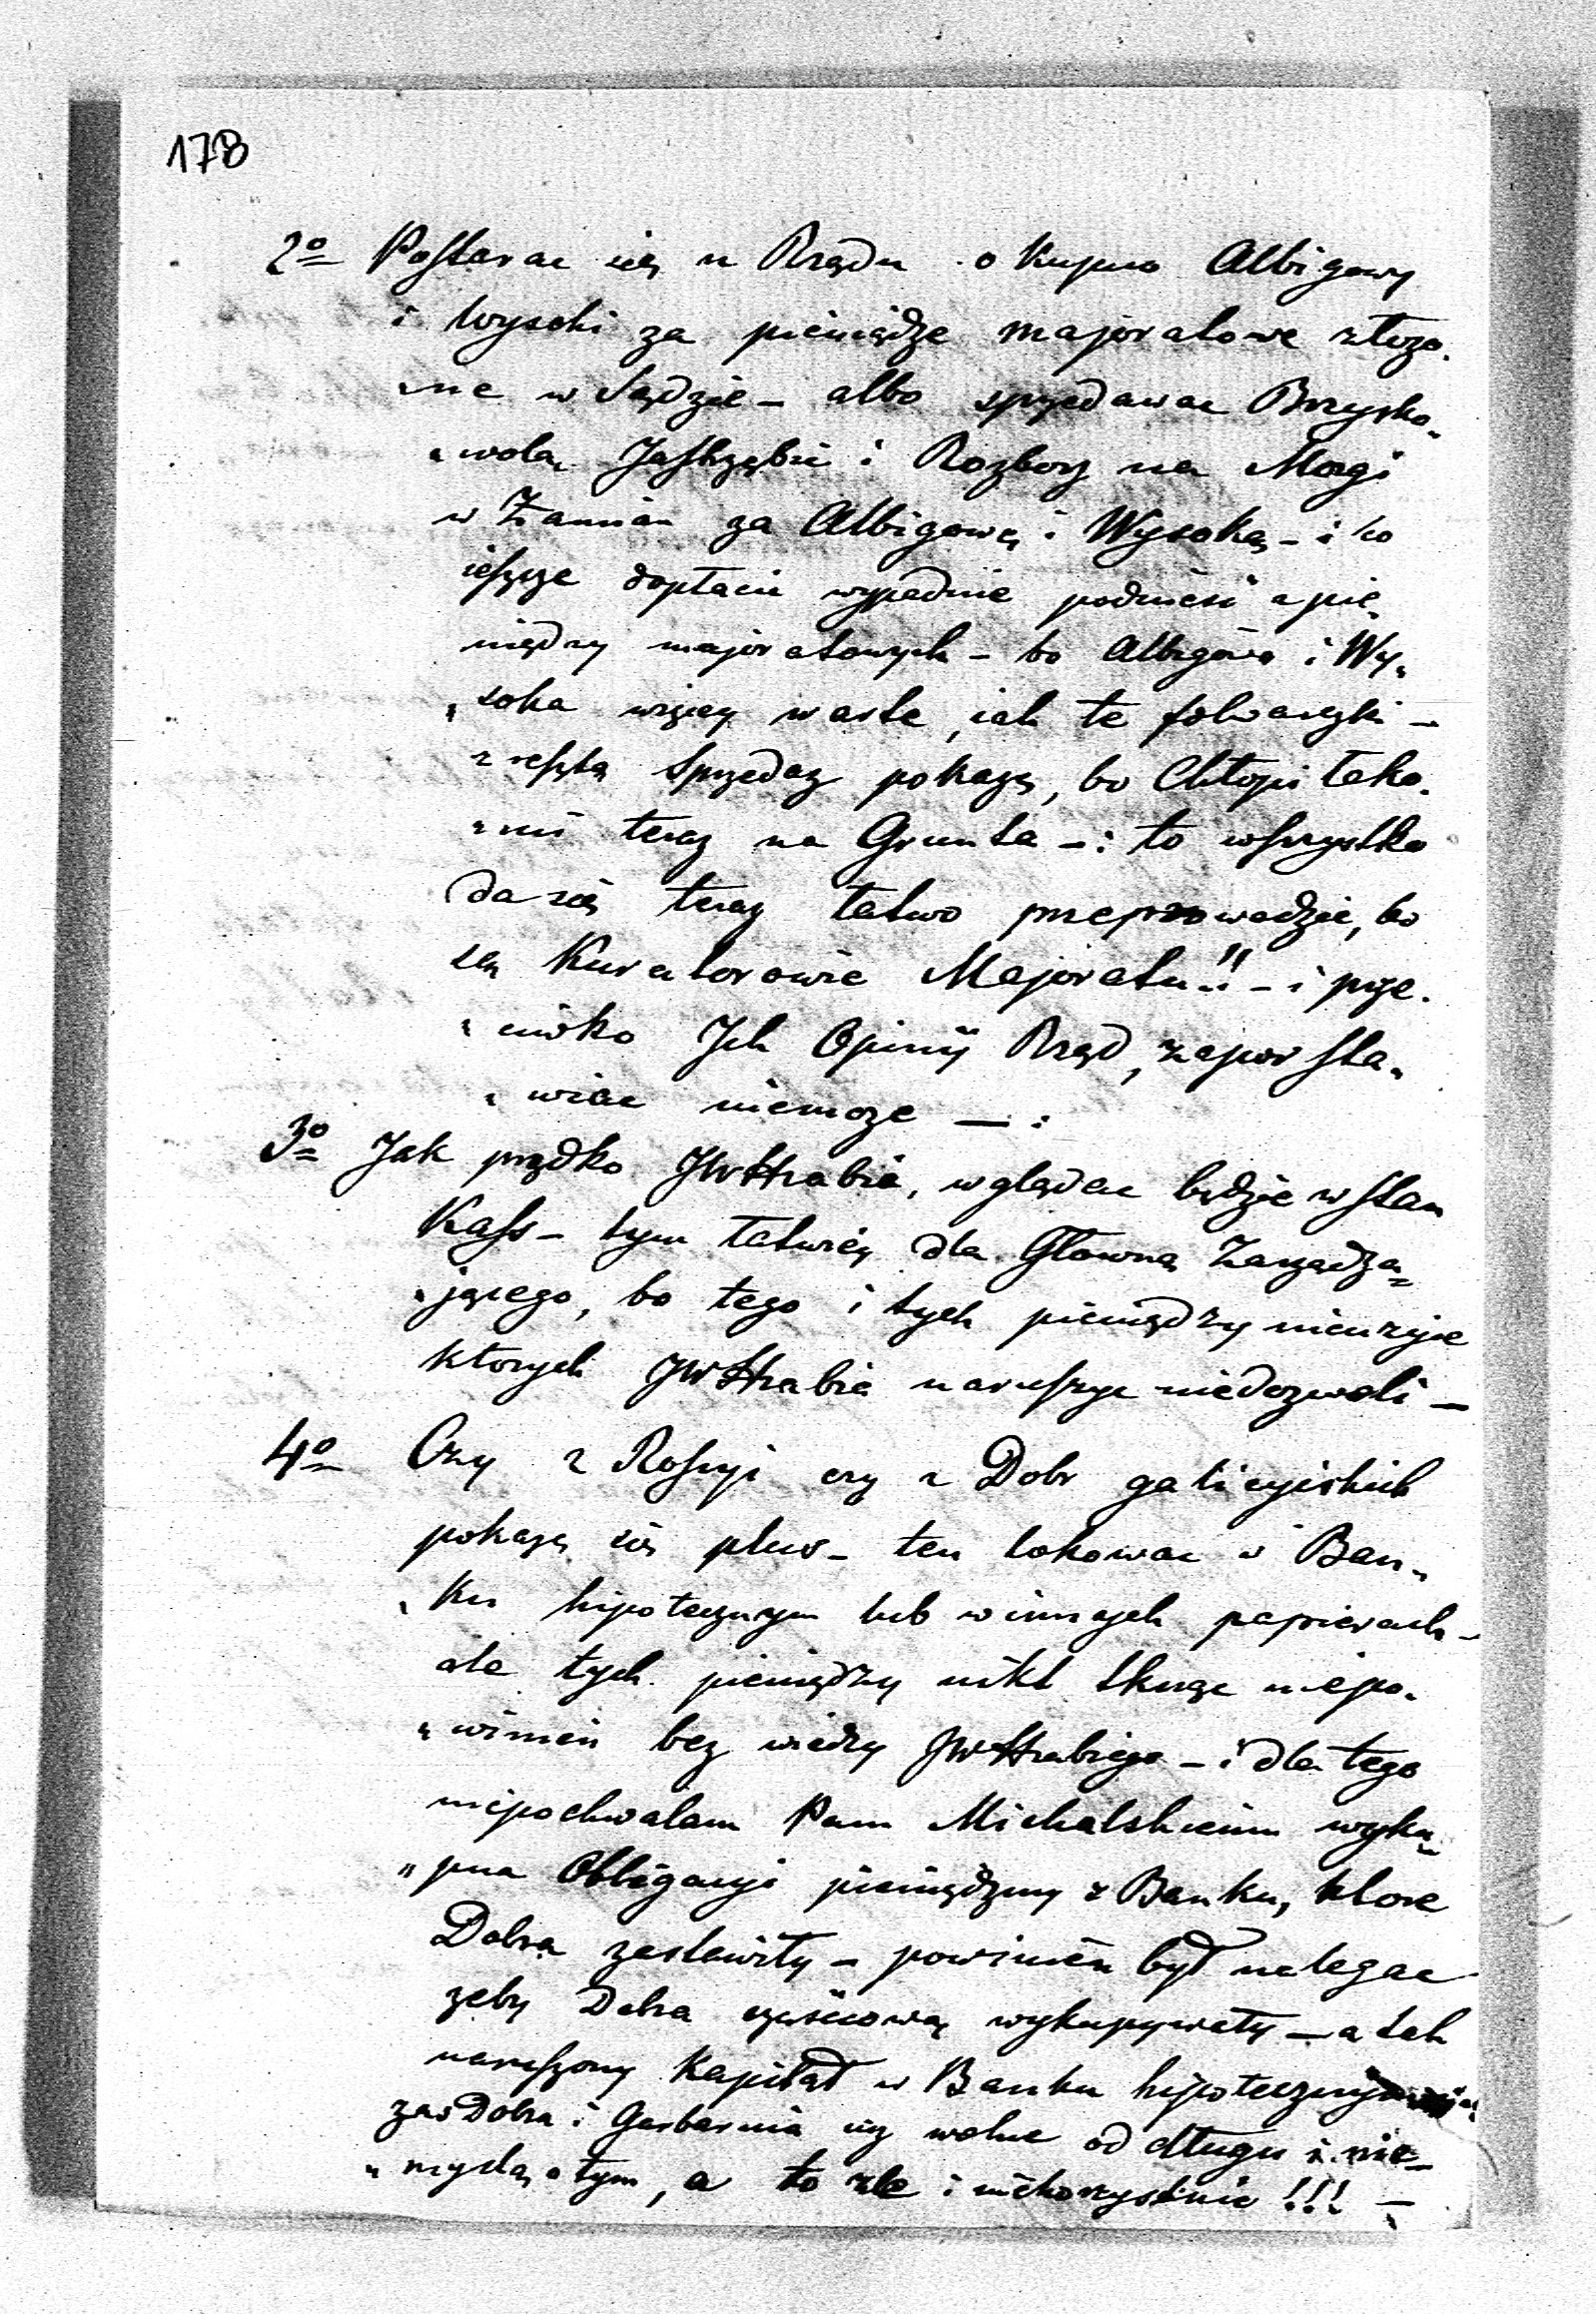 178
2º Postarac się u Rządu o Kupno Albigowy
i Wysoki za pieniądze majoratowe złozo-
„ne w Sądzie – albo sprzedawac Brzysko-
„wolą Jastrzębiu i Rozbory na Morgi
w Zamian za Albigowę i Wysokę – i co
ieszcze dopłacic wypadnie podnieść z pie-
niędzy majoratowych – bo Albigowa i Wy-
„soka więcey warte, iak te folwarczki –
zresztą Sprzedaz pokazę, bo Chłopi łako-
„mi teraz na Grunta – : to wszystko
da się teraz łatwo przeprowadzic, bo
są Kuratorowie Majoratu!! – i prze-
„ciwko Ich Opinij Rząd, zaporsta-
„wiac niemoze – :
3º Jak prędko JWHrabia, wglądac będzie w stan
Kass – tym łatwiey dla Głowną Zarządza-
„jącego, bo tego i tych pieniędzy nieuzyie
ktorych JWHrabia naruszyc niedozwoli –
4º Czy z Rossyi czy z Dobr galicyiskich
pokazę się plus – ten lokowac w Ban-
„Ku hipotecznym lub w innych papierach –
ale tych pieniędzy nikt tknąc niepo-
„winien bez wiedzy JWHrabiego – i dla tego
niepochwalam Panu Michalskiemu wyku-
„pna Obligacyi pieniędzmy z Banku, ktore
Dobra zastawiły – powinien był nalegac
zeby Dobra częściową wykupywały – a tak
naruszony Kapitał w Banku hipotecznym
zas Dobra i Garbarnia są wolne od długu i nie-
„myslą o tym, a to zle i niekorzystnie!!! –